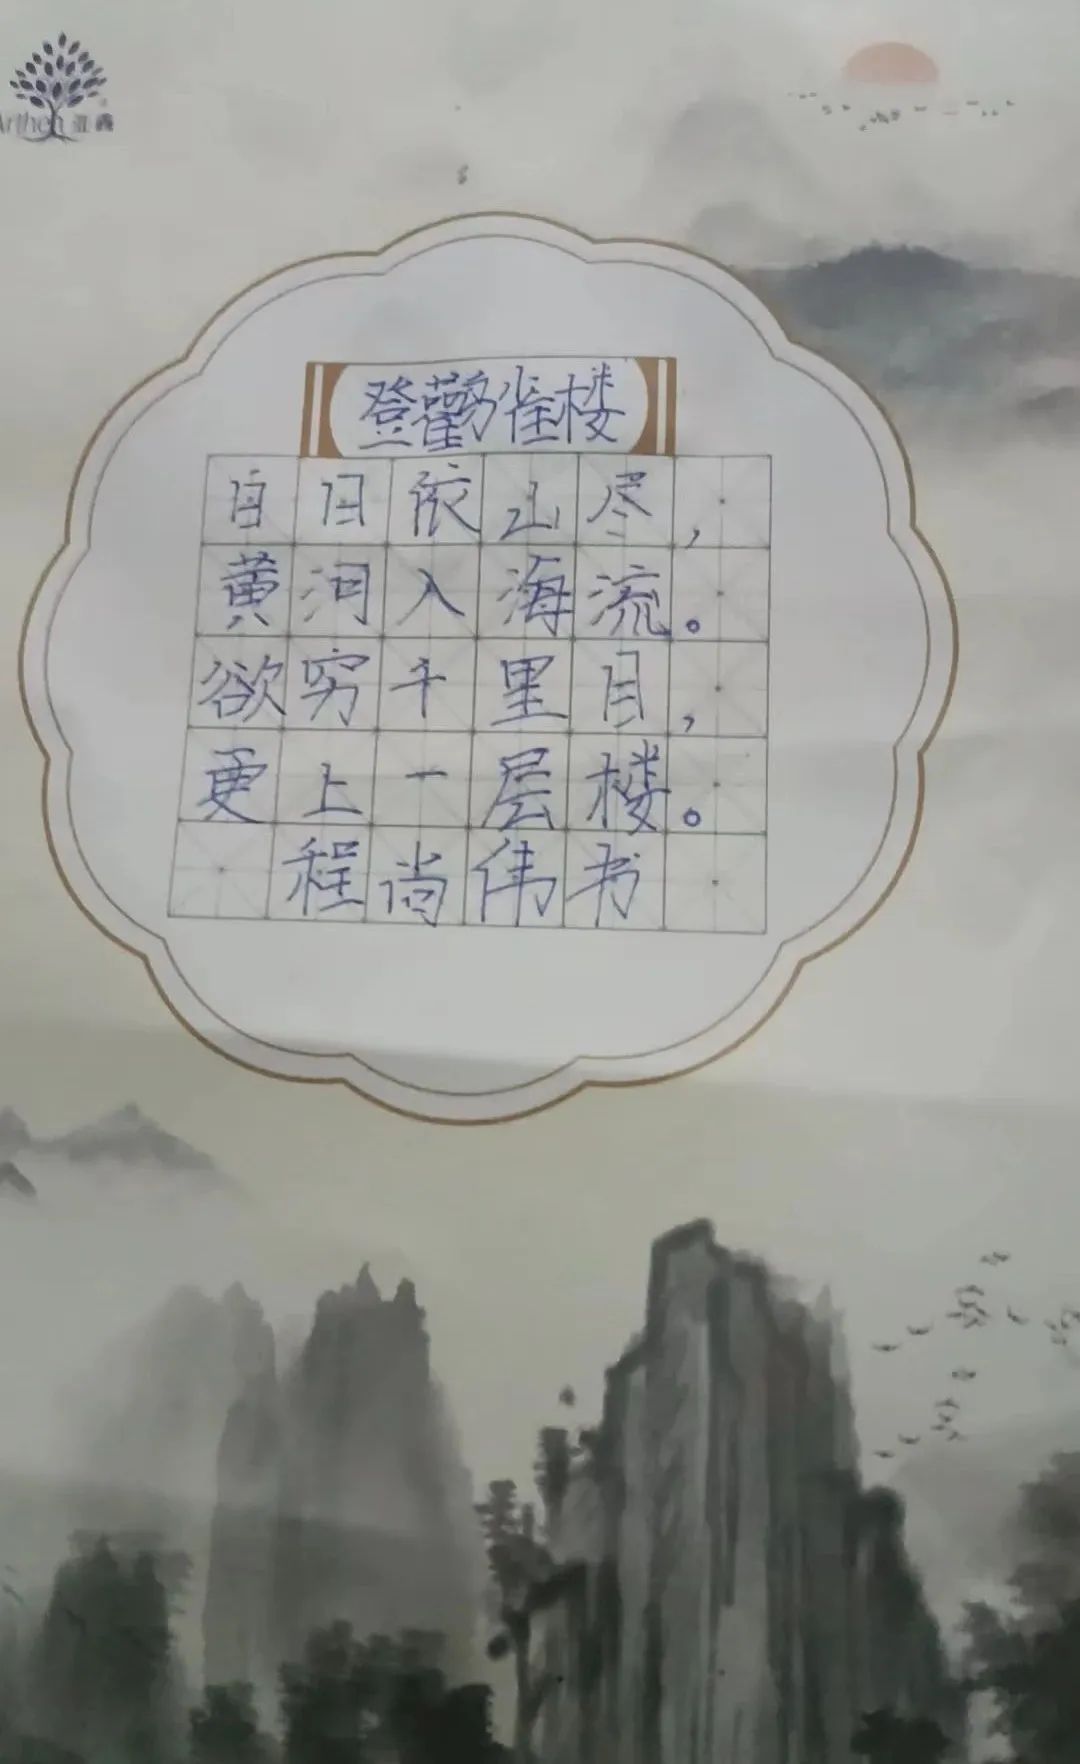 Arthen 亚森
登鹳雀楼
白日依山尽，
黄河入海流。
欲穷千里目，
更上一层楼。
程尚伟书